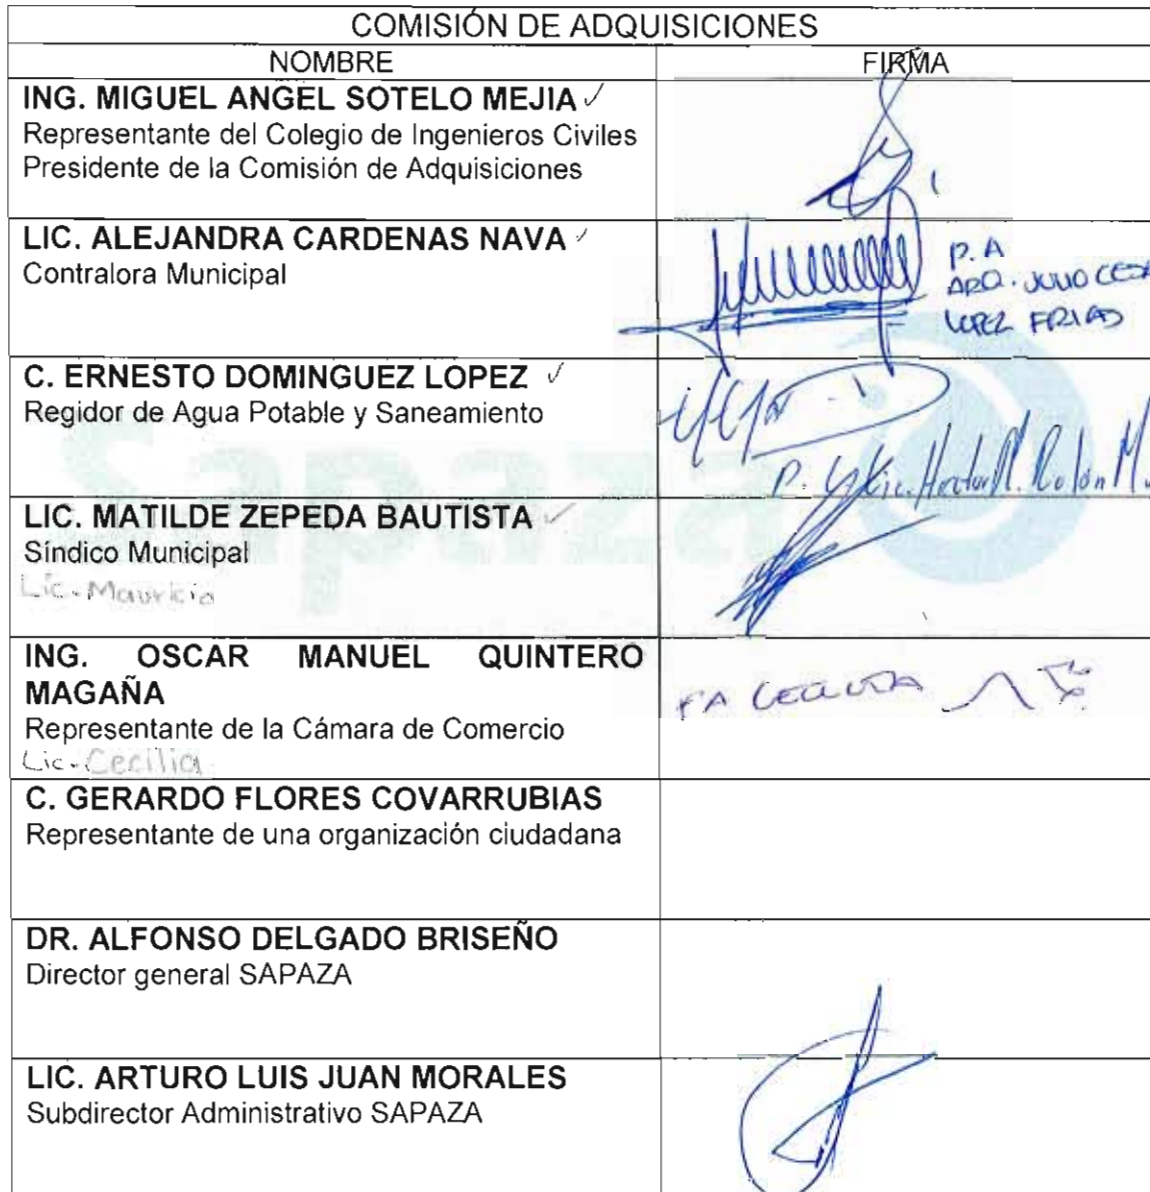 COMISIÓN DE ADQUISICIONES
NOMBRE FIRMA
ING. MIGUEL ANGEL SOTELO MEJIA
Representante del Colegio de Ingenieros Civiles
Presidente de la Comisión de Adquisiciones
LIC. ALEJANDRA CARDENAS NAVA
Contralora Municipal
P. A
ARQ. JULIO CESA
LOPEZ FRIAS
C. ERNESTO DOMINGUEZ LOPEZ
Regidor de Agua Potable y Saneamiento
P. Lic. Hector
Sapaza
LIC. MATILDE ZEPEDA BAUTISTA
Síndico Municipal
Lic. Mauricio
ING. OSCAR MANUEL QUINTERO
MAGAÑA
Representante de la Cámara de Comercio
Lic. Cecilia
C. GERARDO FLORES COVARRUBIAS
Representante de una organización ciudadana
DR. ALFONSO DELGADO BRISEÑO
Director general SAPAZA
LIC. ARTURO LUIS JUAN MORALES
Subdirector Administrativo SAPAZA